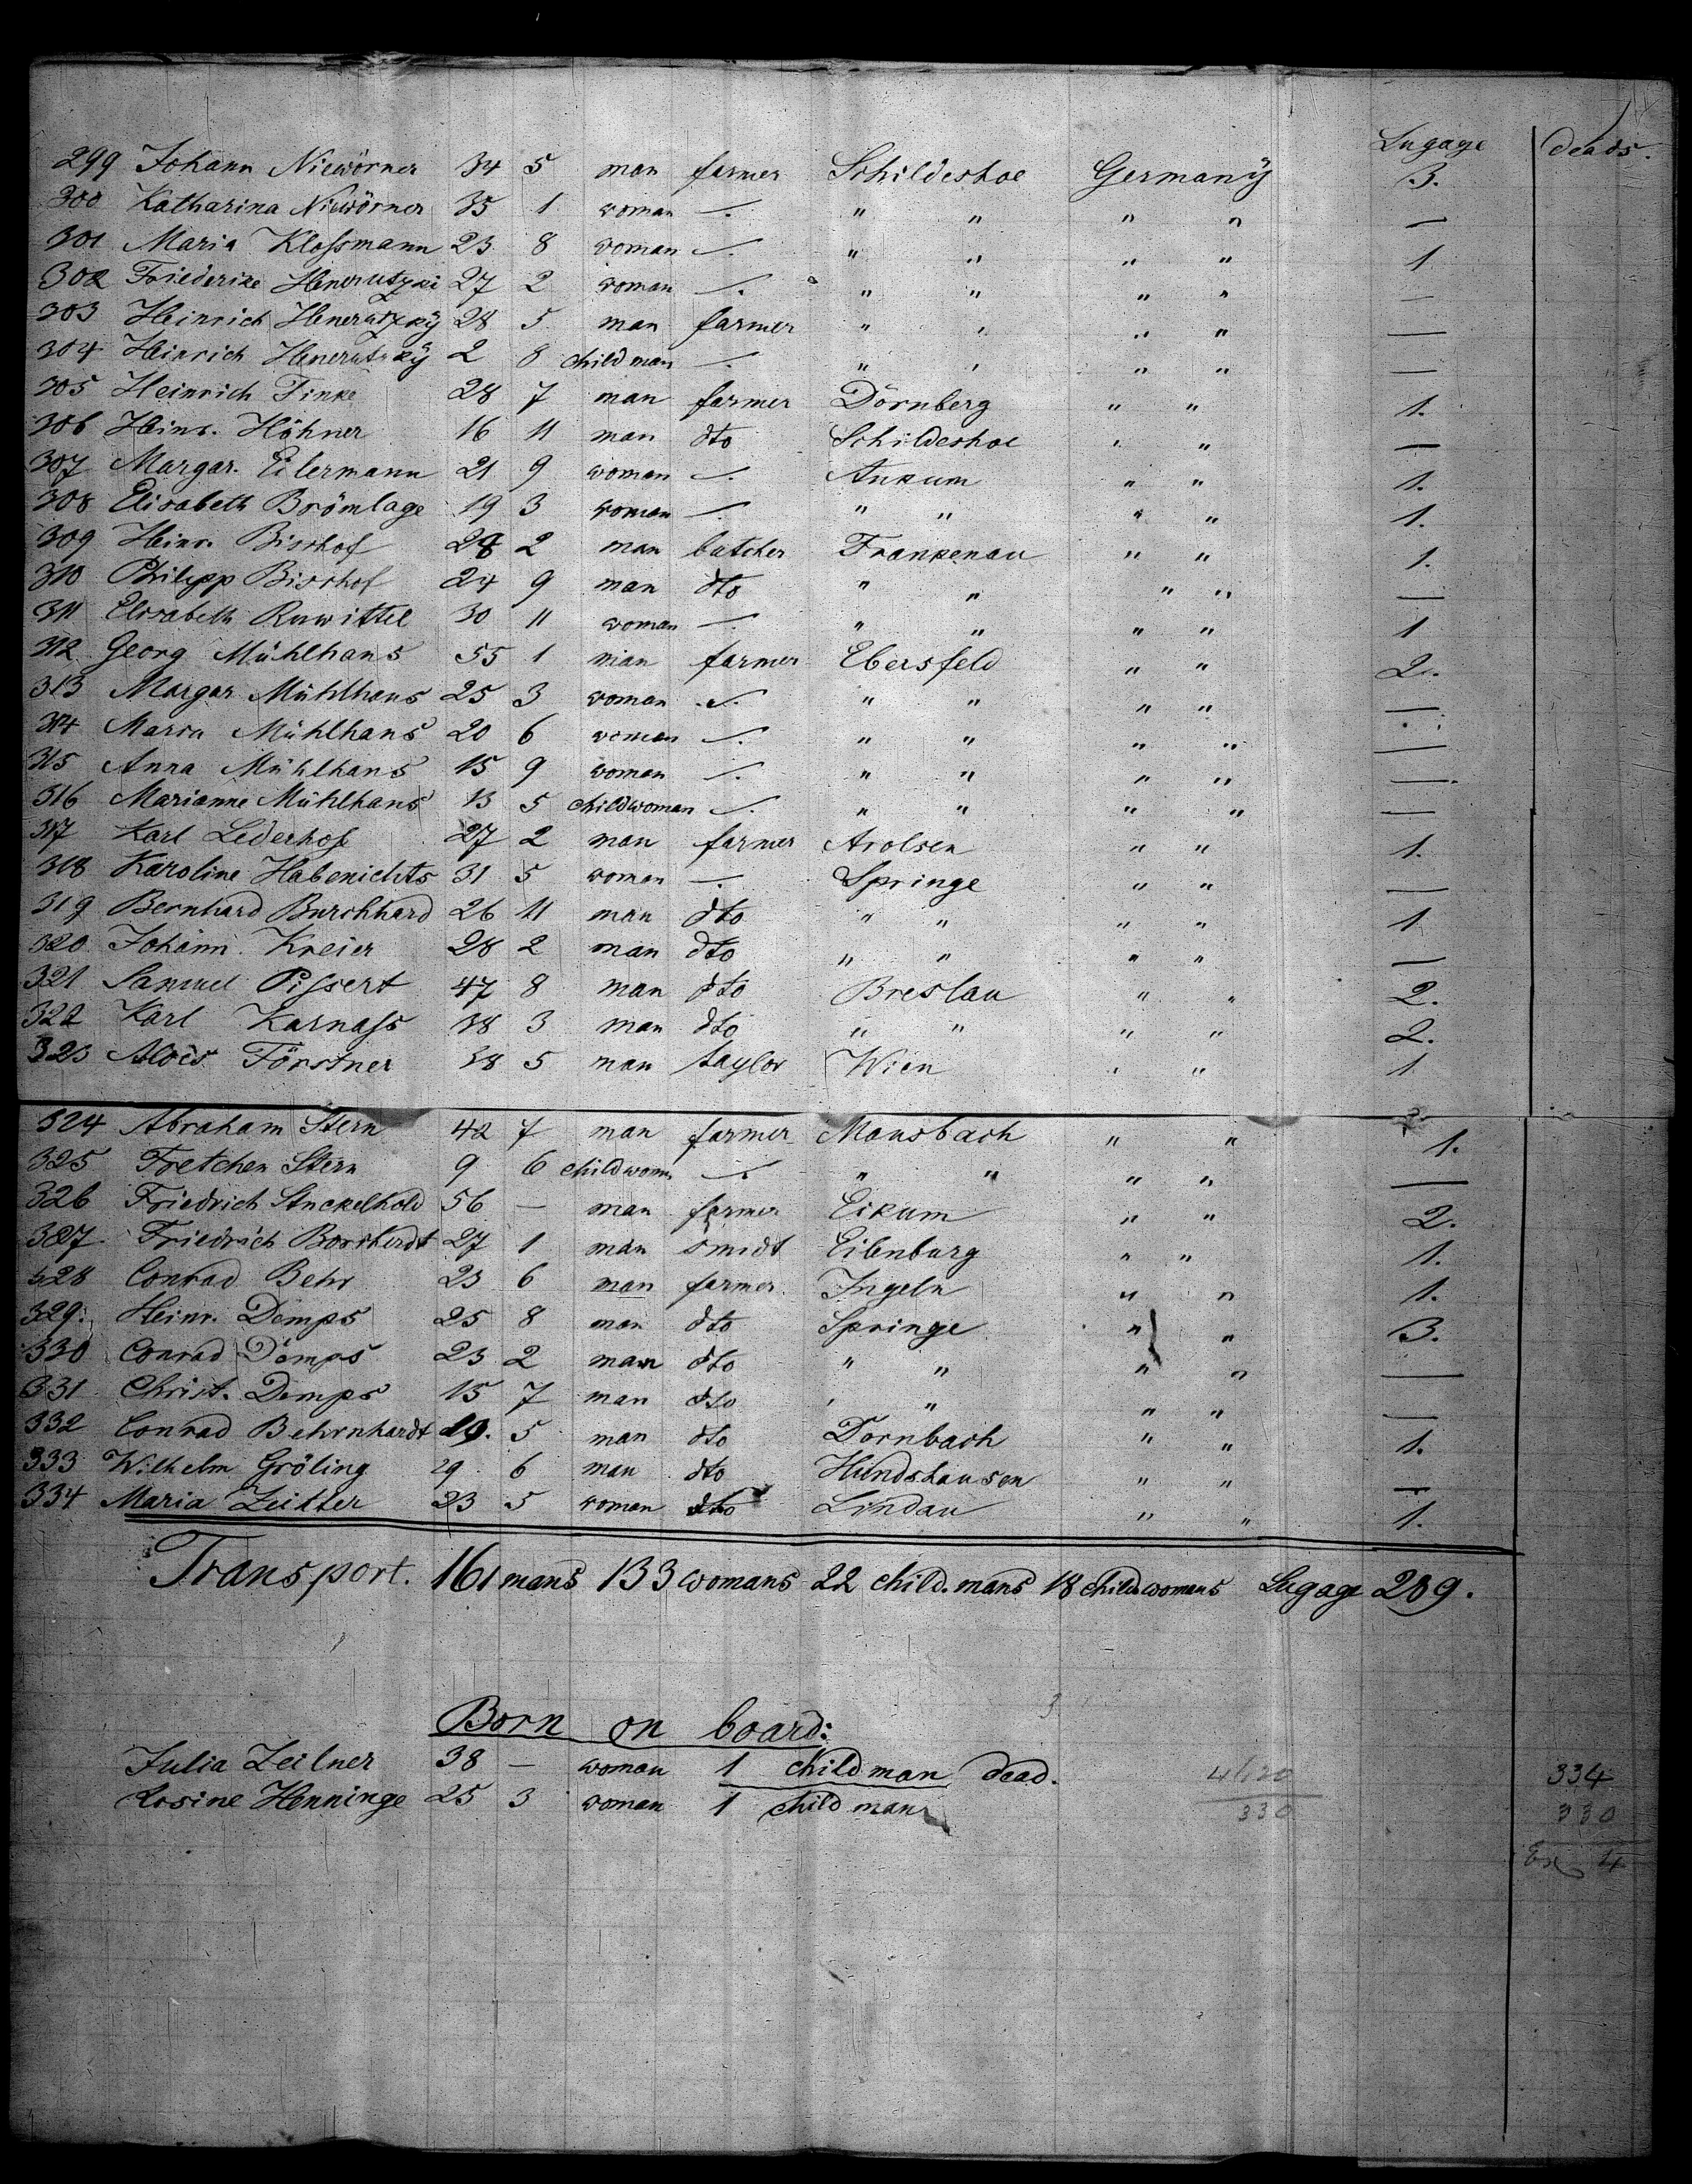 Lugage deads.
299 Johann Niewörner 34 5 man farmer Schildeshoe Germany 3.
300 Katharina Niewörner 35 1 woman —. " " " " —
301 Maria Kloßmann 23 8 woman —. " " " " 1
302 Friederike Henerutzki 27 2 woman —. " " " " —
303 Heinrich Henerutzky 28 5 man farmer " " " " —
304 Heinrich Henerutzky 2 8 child man —. " " " " —
305 Heinrich Finke 28 7 man farmer Dörnberg " " 1.
306 Heinr. Höhner 16 11 man dto Schildeshoe " " —
307 Margar. Eilermann 21 9 woman —. Ankum " " 1.
308 Elisabeth Brömlage 19 3 woman —. " " " " 1.
309 Heinr. Bischof 28 2 man butcher Frankenau " " 1.
310 Philipp Bischof 24 9 man dto " " " " —
311 Elisabeth Ruwittel 30 11 woman —. " " " " 1
312 Georg Mühlhans 55 1 man farmer Ebersfeld " " 2.
313 Margar. Mühlhans 25 3 woman —. " " " " —
314 Maria Mühlhans 20 6 woman —. " " " " —
315 Anna Mühlhans 15 9 woman —. " " " " —.
316 Marianne Mühlhans 13 5 child woman —. " " " " —
317 Karl Lederhose 27 2 man farmer Arolsen " " 1.
318 Karoline Habenichts 31 5 woman —. Springe " " —
319 Bernhard Burchhard 26 11 man dto " " " " 1
320 Johann Kreier 28 2 man dto " " " " —
321 Samuel Pißert 47 8 man dto Breslau " " 2.
322 Karl Karnaß 38 3 man dto " " " " 2.
323 Alois Förstner 38 5 man taylor Wien " " 1
324 Abraham Stern 42 7 man farmer Mansbach " " 1.
325 Fretchen Stern 9 6 child wom. —. " " " " —
326 Friedrich Stuckelhold 56 — man farmer Eikum " " 2.
327 Friedrich Borcherdt 27 1 man smidt Eilenburg " " 1.
328 Conrad Behr 23 6 man farmer Ingeln " " 1.
329. Heinr. Demps 25 8 man dto Springe " " 3.
330 Conrad Demps 23 2 man dto " " " " —
331 Christ. Demps 15 7 man dto " " " " —
332 Conrad Behrnhardt 19. 5 man dto Dornbach " " 1.
333 Wilhelm Gröling 29 6 man dto Hundshausen " " —
334 Maria Zeitter 23 5 woman dto Lindau " " 1.
Transport. 161 mans 133 womans 22 child. mans 18 child.womans Lugage 289.
Born on board:
Julia Zeilner 38 — woman 1 child man dead.
Rosine Henninge 25 3 woman 1 child man
330
334
330
4